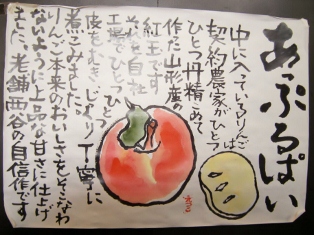 あっぷるぱい
中に入っているりんごは
契約農家がひとつ
ひとつ丹精こめて
作った山形産の
紅玉です
それを自社
工場でひとつひとつ
皮をむき、じっくり丁寧に
煮こみました。
りんご本来のおいしさをそこなわ
ないように上品な甘さに仕上げ
ました、老舗西谷の自信作です